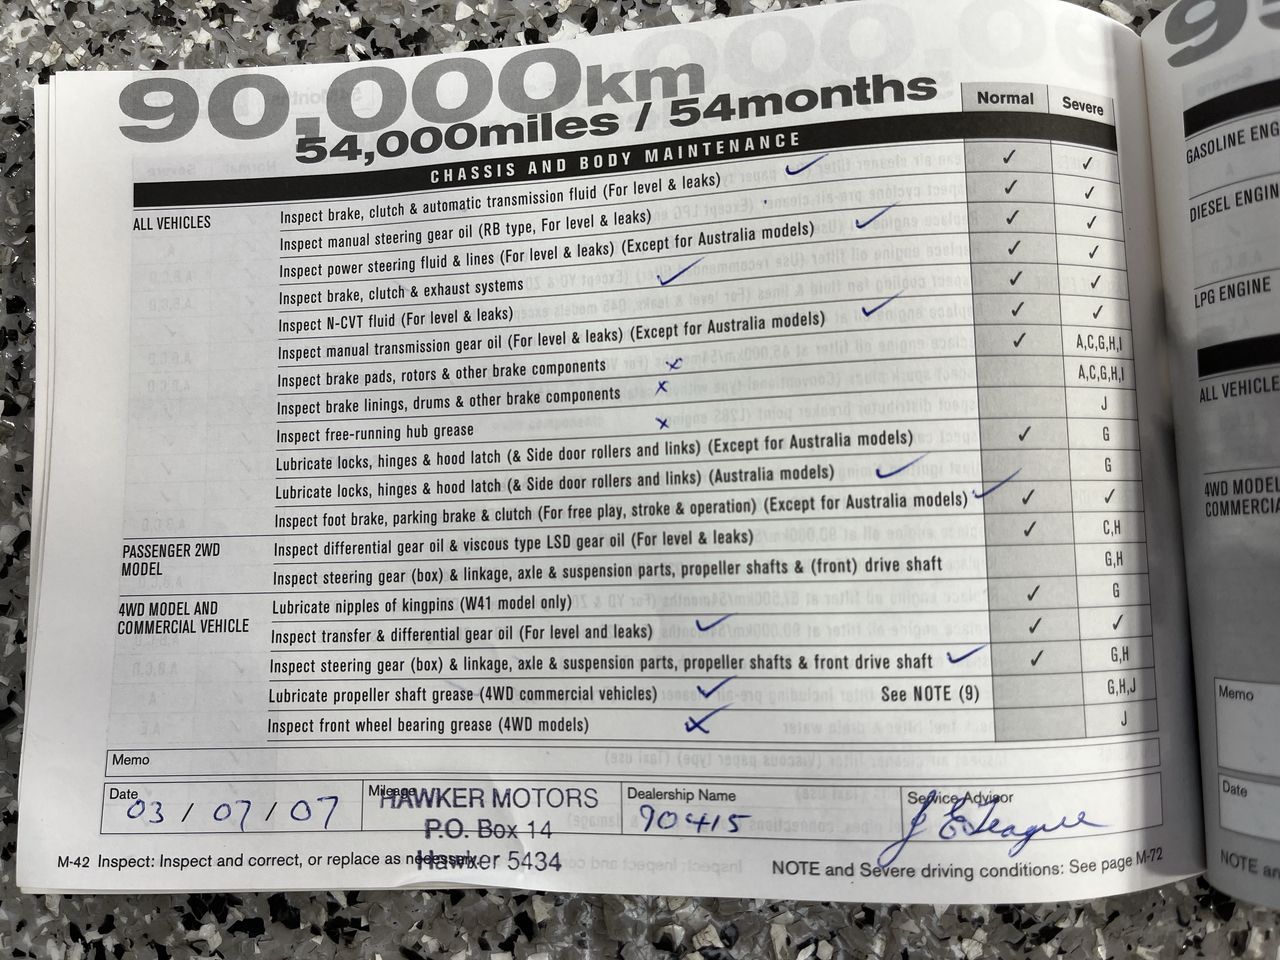 90,000km
54,000miles / 54months
Normal Severe
CHASSIS AND BODY MAINTENANCE
ALL VEHICLES
Inspect brake, clutch & automatic transmission fluid (For level & leaks) ✓ ✓ ✓
Inspect manual steering gear oil (RB type, For level & leaks) ✓ ✓
Inspect power steering fluid & lines (For level & leaks) (Except for Australia models) ✓ ✓ ✓
Inspect brake, clutch & exhaust systems ✓ ✓ ✓
Inspect N-CVT fluid (For level & leaks) ✓ ✓
Inspect manual transmission gear oil (For level & leaks) (Except for Australia models) ✓ ✓ ✓
Inspect brake pads, rotors & other brake components x ✓ A,C,G,H,I
Inspect brake linings, drums & other brake components x A,C,G,H,I
Inspect free-running hub grease x J
Lubricate locks, hinges & hood latch (& Side door rollers and links) (Except for Australia models) ✓ G
Lubricate locks, hinges & hood latch (& Side door rollers and links) (Australia models) ✓ G
Inspect foot brake, parking brake & clutch (For free play, stroke & operation) (Except for Australia models) ✓ ✓ ✓
PASSENGER 2WD
MODEL
Inspect differential gear oil & viscous type LSD gear oil (For level & leaks) ✓ C,H
Inspect steering gear (box) & linkage, axle & suspension parts, propeller shafts & (front) drive shaft G,H
4WD MODEL AND
COMMERCIAL VEHICLE
Lubricate nipples of kingpins (W41 model only) ✓ G
Inspect transfer & differential gear oil (For level and leaks) ✓ ✓ ✓
Inspect steering gear (box) & linkage, axle & suspension parts, propeller shafts & front drive shaft ✓ ✓ G,H
Lubricate propeller shaft grease (4WD commercial vehicles) ✓ See NOTE (9) G,H,J
Inspect front wheel bearing grease (4WD models) x J
Memo
Date 03 / 07 / 07
Mileage
HAWKER MOTORS
P.O. Box 14
Hawker 5434
Dealership Name
90415
Service Advisor
J E Teague
M-42 Inspect: Inspect and correct, or replace as necessary.
NOTE and Severe driving conditions: See page M-72
95
GASOLINE ENG
DIESEL ENGIN
LPG ENGINE
ALL VEHICLE
4WD MODEL
COMMERCIA
Memo
Date
NOTE an